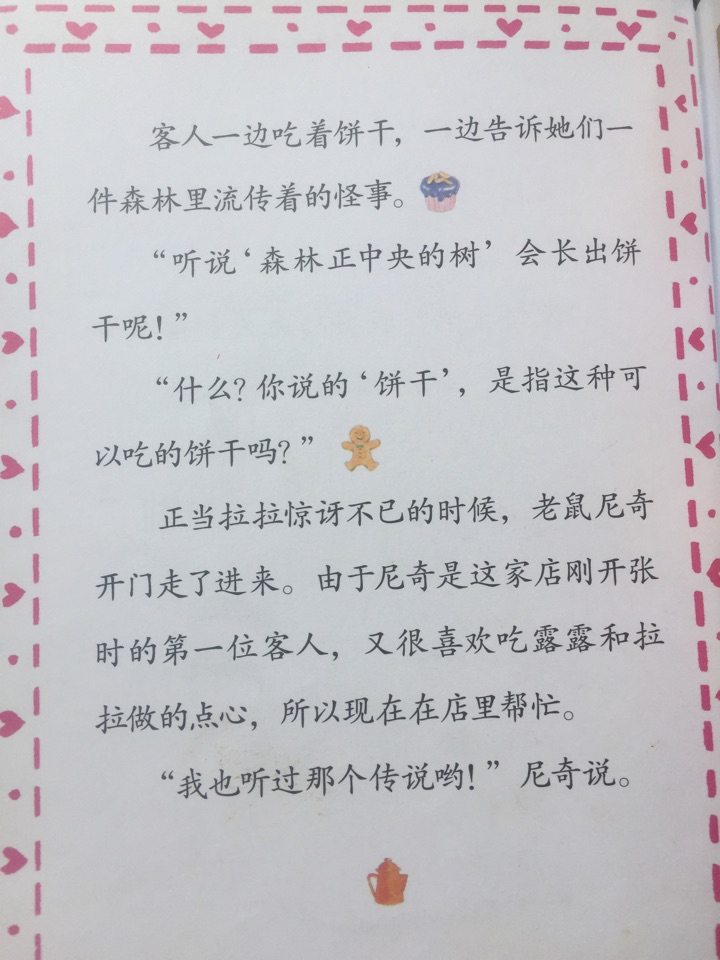 客人一边吃着饼干，一边告诉她们一
件森林里流传着的怪事。
“听说‘森林正中央的树’会长出饼
干呢！”
“什么？你说的‘饼干’，是指这种可
以吃的饼干吗？”
正当拉拉惊讶不已的时候，老鼠尼奇
开门走了进来。由于尼奇是这家店刚开张
时的第一位客人，又很喜欢吃露露和拉
拉做的点心，所以现在在店里帮忙。
“我也听过那个传说哟！”尼奇说。